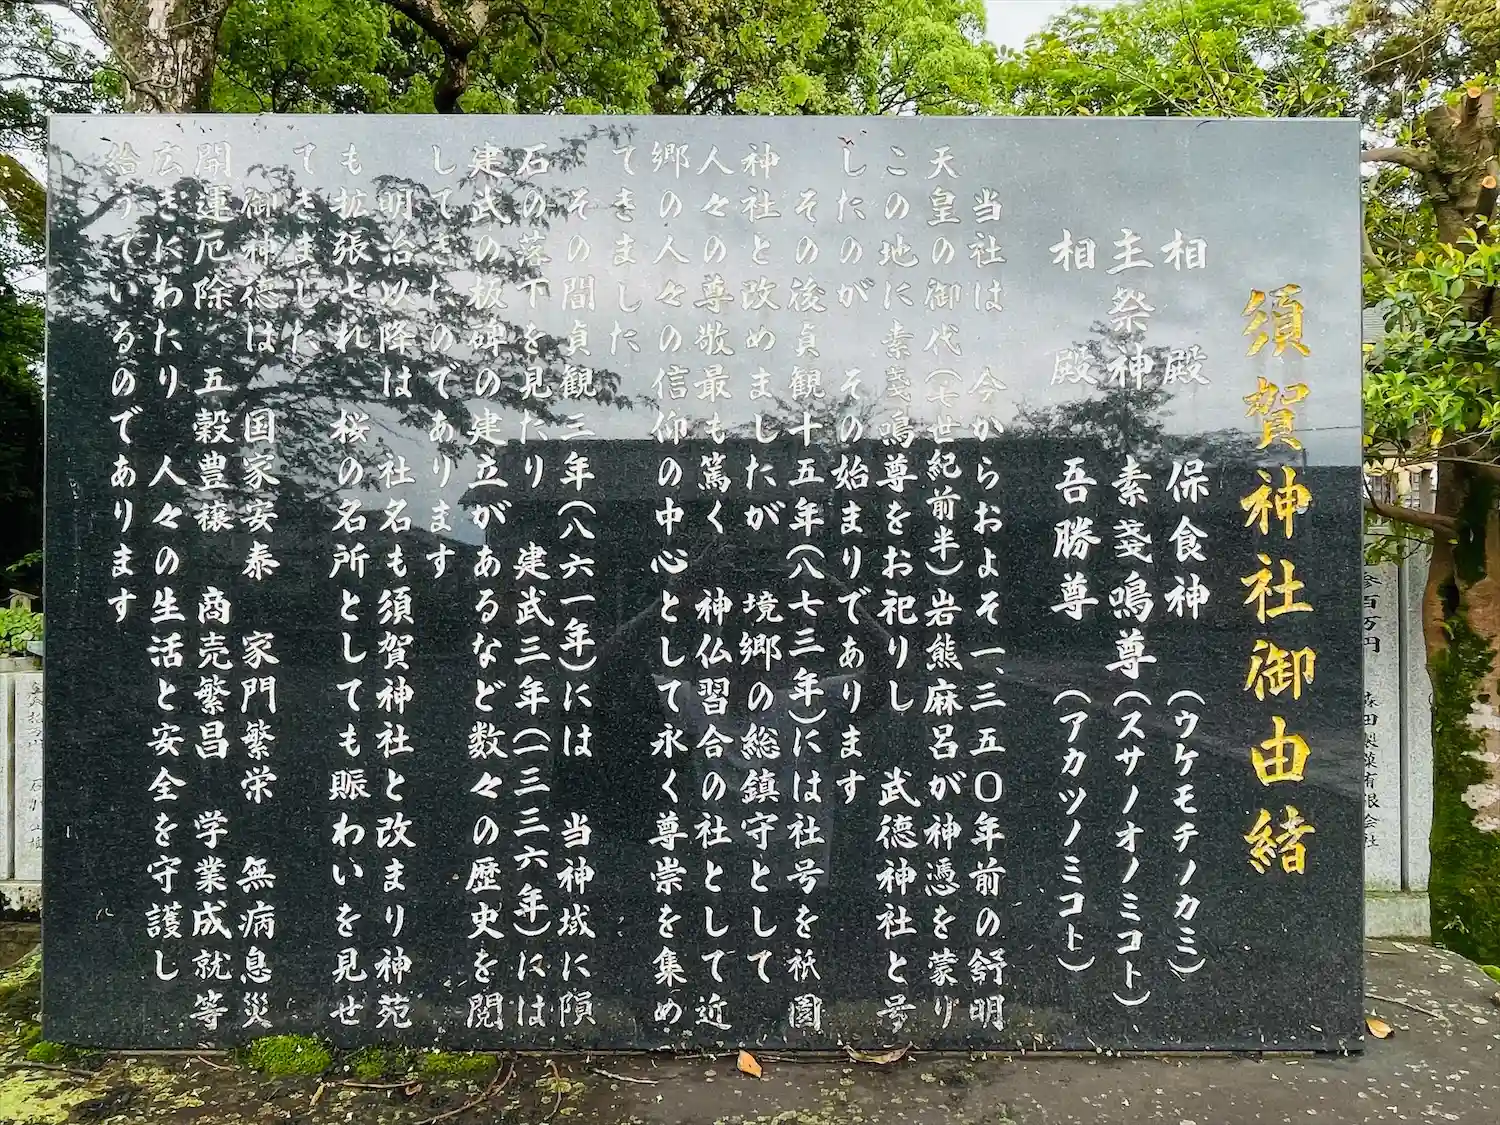 須賀神社御由緒
相殿 保食神(ウケモチノカミ)
主祭神 素戔鳴尊(スサノオノミコト)
相殿 吾勝尊(アカツノミコト)
当社は 今からおよそ一、三五〇年前の舒明
天皇の御代(七世紀前半)岩熊麻呂が神憑を蒙り
この地に素戔鳴尊をお祀りし 武徳神社と号
したのが その始まりであります
その後貞観十五年(八七三年)には社号を祇園
神社と改めましたが 境郷の総鎮守として
人々の尊敬最も篤く 神仏習合の社として近
郷の人々の信仰の中心として永く尊崇を集め
てきました
その間貞観三年(八六一年)には 当神域に隕
石の落下を見たり 建武三年(一三三六年)には
建武の板碑の建立があるなど数々の歴史を閲
してきたのであります
明治以降は 社名も須賀神社と改まり神苑
も拡張され 桜の名所としても賑わいを見せ
てきました
御神徳は 国家安泰 家門繁栄 無病息災
開運厄除 五穀豊穣 商売繁昌 学業成就等
広きにわたり 人々の生活と安全を守護し
給うているのであります
参百万円 森田製菓有限会社